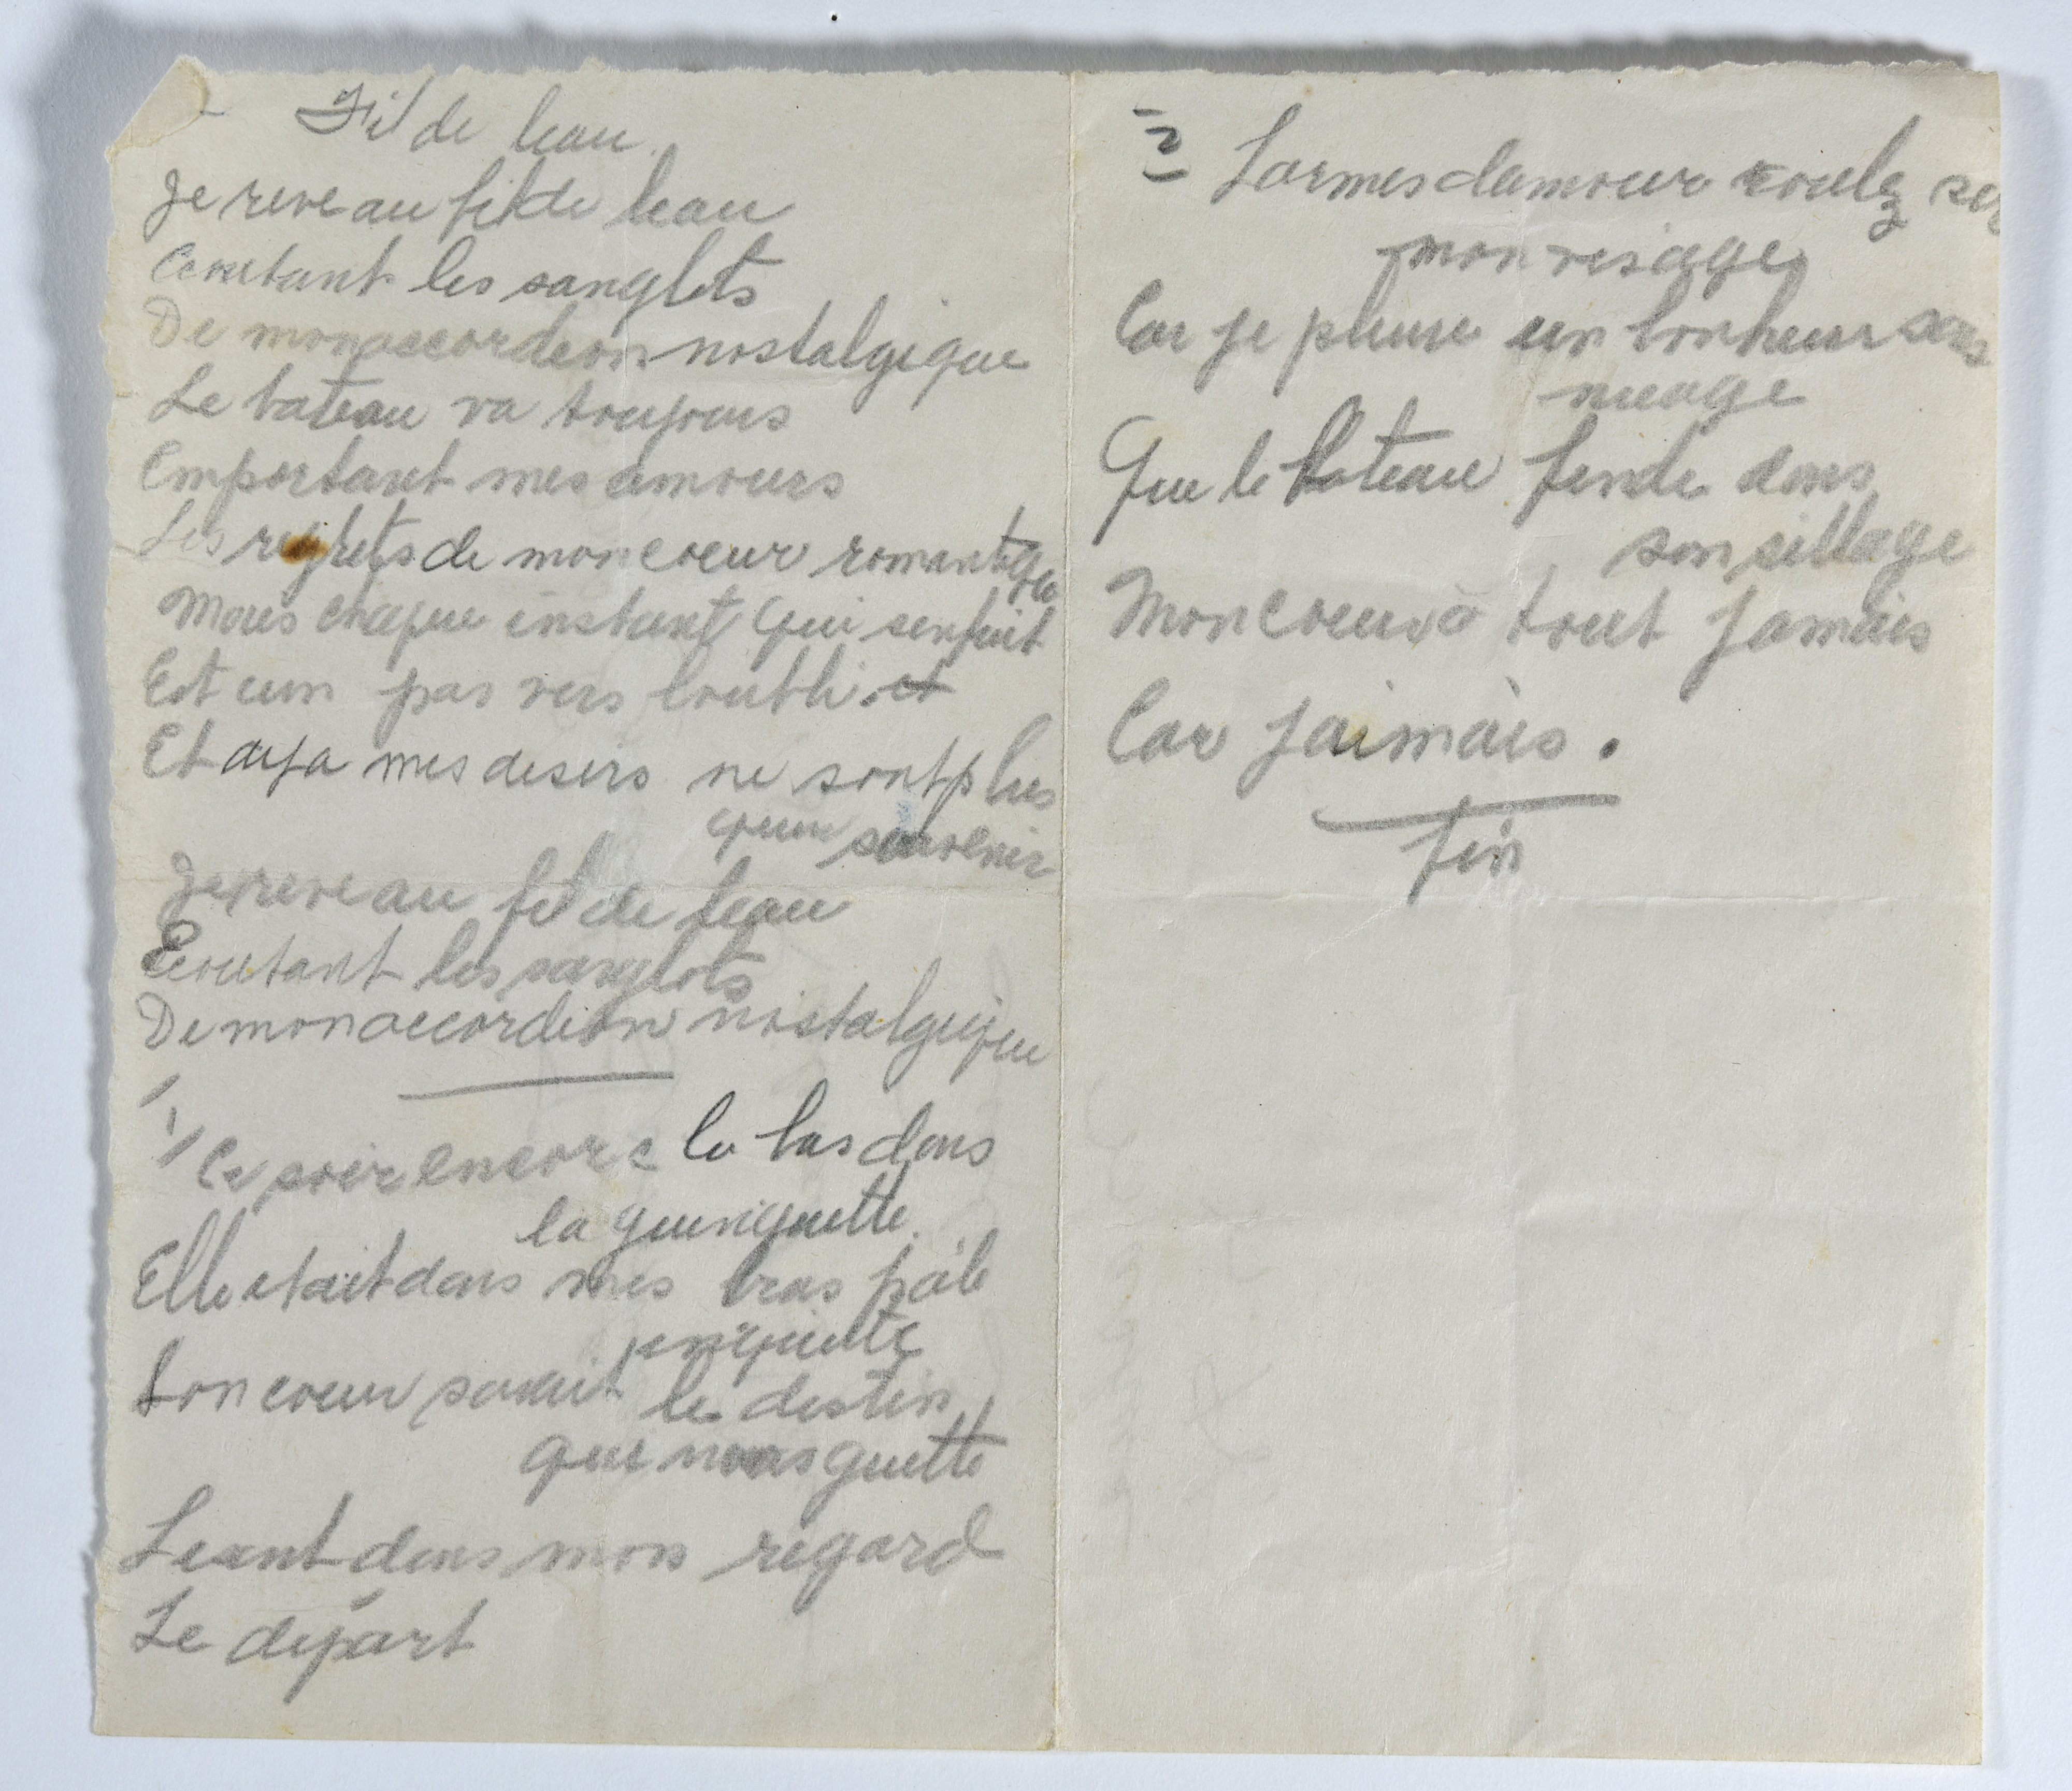 Fil de leau
Je reve au fil de leau
Ecoutant les sanglots
De mon accordeon nostalgique
Le bateau va toujours
Emportant mes amours
Les regrets de mon coeur romantique
Mais chaque instant qui senfuit
Est un pas vers loubli. et
Et deja mes desirs ne sont plus
quun souvenir
Je reve au fil de leau
Ecoutant les sanglots
De mon accordeon nostalgique
1/ Ce soir encore la bas dans
la guinguette
Elle etait dans mes bras pâle
inquiete
Son coeur savait le destin
qui nous guette
Lisant dans mon regard
Le départ
2 Larmes damour coulez sur
mon visage
Car je pleure un bonheur sans
nuage
Que le bateau fende dans
son sillage
Mon coeur à tout jamais
Car jaimais.
fin